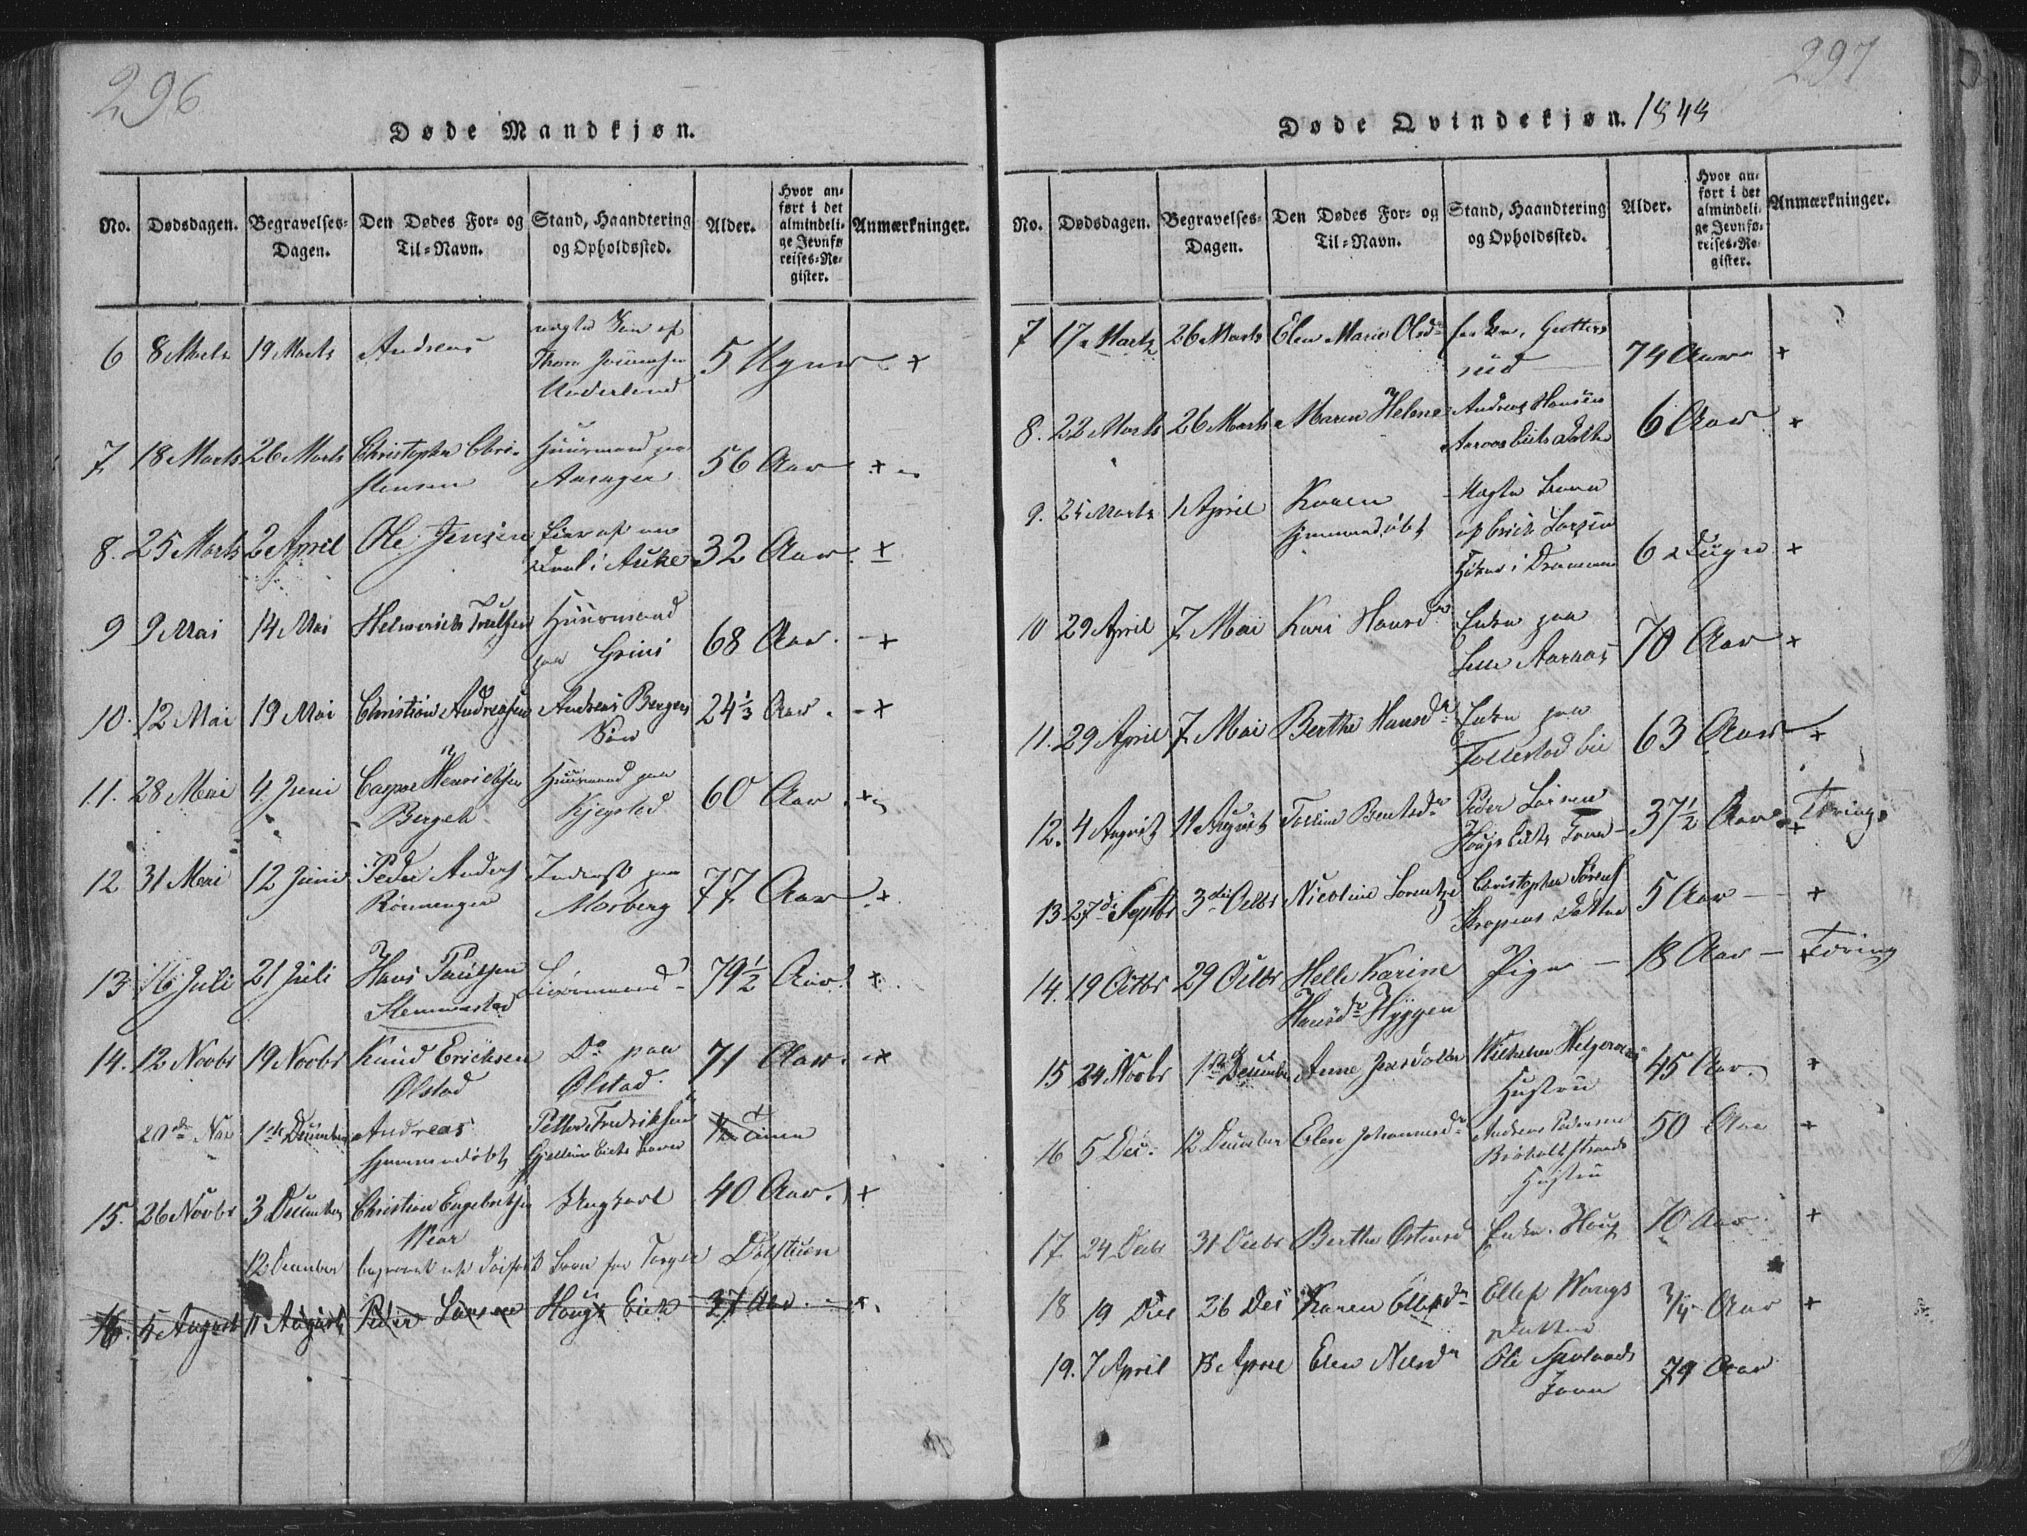 296
Døde Mandkjøn.
No. Dødsdagen. Begravelses-Dagen. Den Dødes For- og Til-Navn. Stand, Haandtering og Opholdssted. Alder. Hvor anført i det almindelige Jevnføreises-Register. Anmærkninger.
6 8 Marts 19 Marts Andreas
Søn af
Underland 5 Uger +
7 18 Marts 26 Marts Christopher Chri-
stensen
Huusmand paa
Aasager 56 Aar +
8. 25 Marts 2 April Ole Jensen
i Auke 32 Aar +
9 9 Mai 14 Mai Helmerich Trulsen
Huusmand
paa Grini 68 Aar. +
10. 12 Mai 19 Mai Christian Andreasen
Andreas Bergers
Søn 24 1/3 Aar. +
11. 28 Mai 4. Juni Casper Henrichsen
Bergeh
Huusmand paa
Kjegstad 60 Aar. +
12 31 Mai 12 Juni Peder Anders
Rönningen
Inderst paa
Morberg 77 Aar +
13 16 Juli 21 Juli Hans Paulsen
Slemmestad
79 1/2 Aar. +
14. 12 Novbr 19 Novbr Knud Erichsen
Ølstad
Do paa
Ølstad. 71 Aar. +
20de Nov 1ste December Andreas
hjemmedøbt
Petter Fredriksen
Gjellum Eiets 1/2 Time +
15. 26 Novbr 3 December Christian Engebretsen
40 Aar. +
12 December begravet et Søn for Torger
16. 5 August 11 August Peder Larsen Houg Eiet 37 Aar. +
297
Døde Qvindekjøn. 1848
No. Dødsdagen. Begravelses-Dagen. Den Dødes For- og Til-Navn. Stand, Haandtering og Opholdssted. Alder. Hvor anført i det almindelige Jevnføreises-Register. Anmærkninger.
7 17 Marts 26 Marts Elen Marie Olsdr
Gutters
rud 74 Aar +
8. 22 Marts 26 Marts Maren Helene
Andreas Hansen
Aaraas Eiets Datter 6 Aar +
9. 25 Marts 1 April Karen
hjemmedøbt
af Erich Larsen
i Drammen 6 Dage +
10 29 April 7 Mai Kari Hansdr
Enke paa
Lille Aaraas 70 Aar +
11. 29 April 7 Mai Berthe Hansdr
Enke paa
Tollestad Eie 63 Aar +
12. 4 August 11 August Torine Bentsdr
Peder Larsen
Hougs Eiets Kone 37 1/2 Aar. + Tæring
13 27de Septbr 3die Octbr Nicoline Lorentze
Christopher Sørens
Datter 5 Aar +
14. 19 Octbr 29 Octbr Helle Karine
Hansdr Hyggen
Pige 18 Aar Tæring
15 24 Novbr 1ste December Anne Jensdatter
Wilhelm Helgeraas
Hustru 45 Aar. +
16 5 Dec. 12 December Elen Johannesdr
Andreas Pedersen
Bråholtstrands
Hustru 50 Aar +
17. 24 Decbr 31 Decbr Berthe Østensd
Enke. Houg 70 Aar. +
18 19 Dec 26 Dec Karen Ellefsdr
Ellef Wangs
Datter 3/4 Aar +
19. 7 April 15 April Elen Nilsdr
Ole
Kone 79 Aar